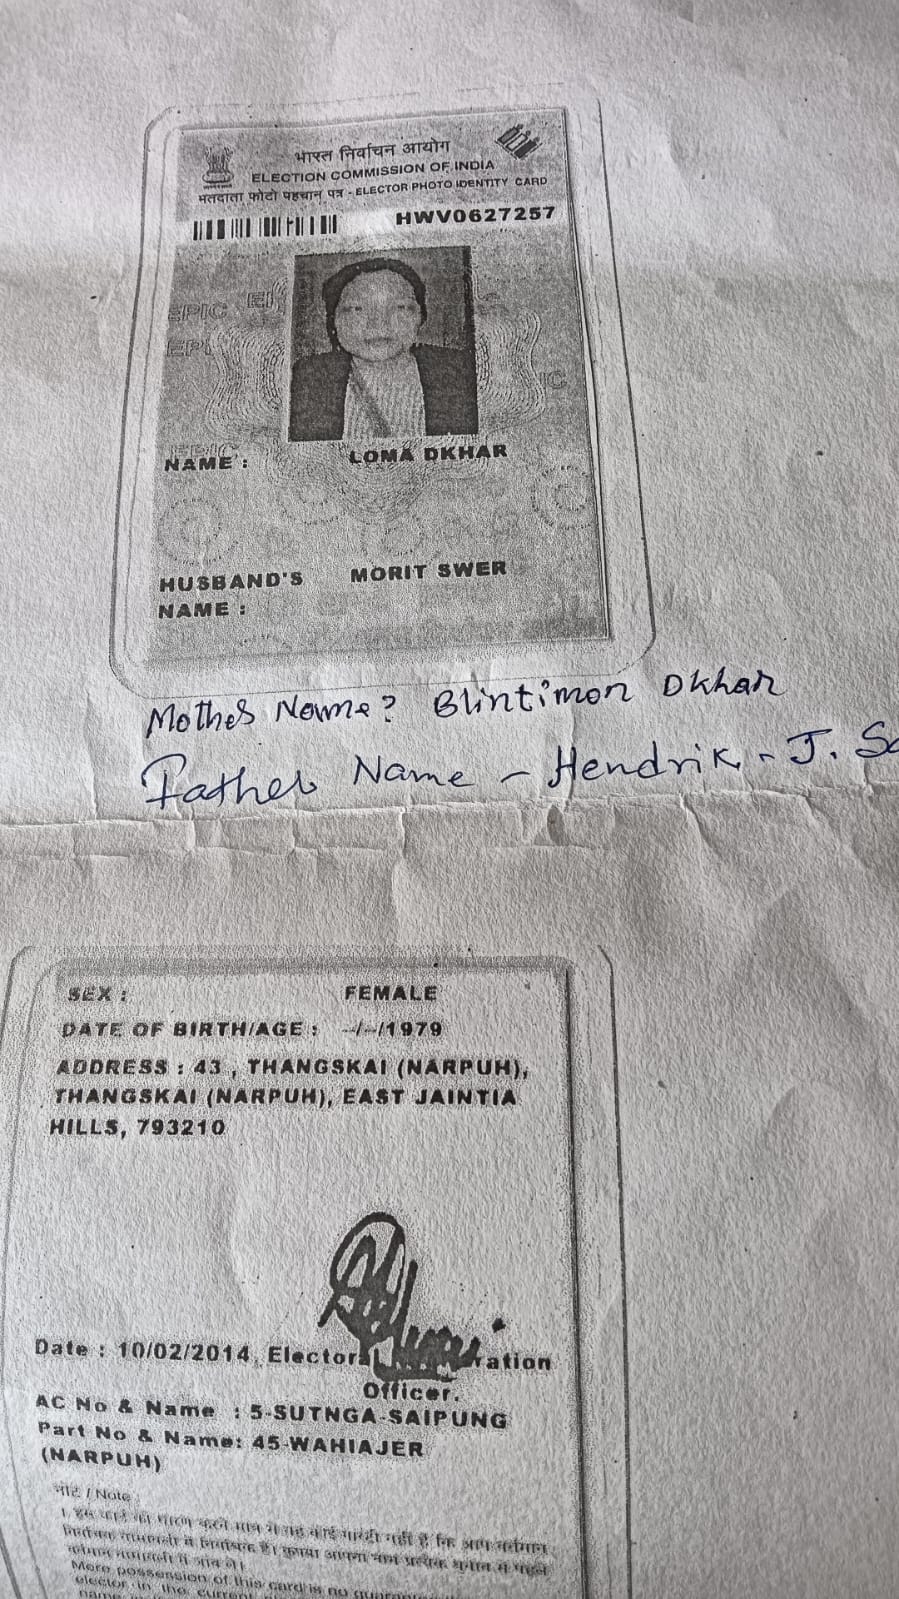 भारत निर्वाचन आयोग
ELECTION COMMISSION OF INDIA
मतदाता फोटो पहचान पत्र - ELECTOR PHOTO IDENTITY CARD
HWV0627257
EPIC
NAME : LOMA DKHAR
HUSBAND'S MORIT SWER
NAME :
Mother Name? Blintimon Dkhar
Father Name - Hendrik - J.
SEX : FEMALE
DATE OF BIRTH/AGE : --/--/1979
ADDRESS : 43 , THANGSKAI (NARPUH),
THANGSKAI (NARPUH), EAST JAINTIA
HILLS, 793210
Date : 10/02/2014, Electoral
Officer.
AC No & Name : 5-SUTNGA-SAIPUNG
Part No & Name: 45-WAHIAJER
(NARPUH)
नोट / Note
1. इस कार्ड को धारण करने मात्र से यह कोई गारंटी नहीं है कि आप वर्तमान
Mere possession of this card is no
elector in the current
name